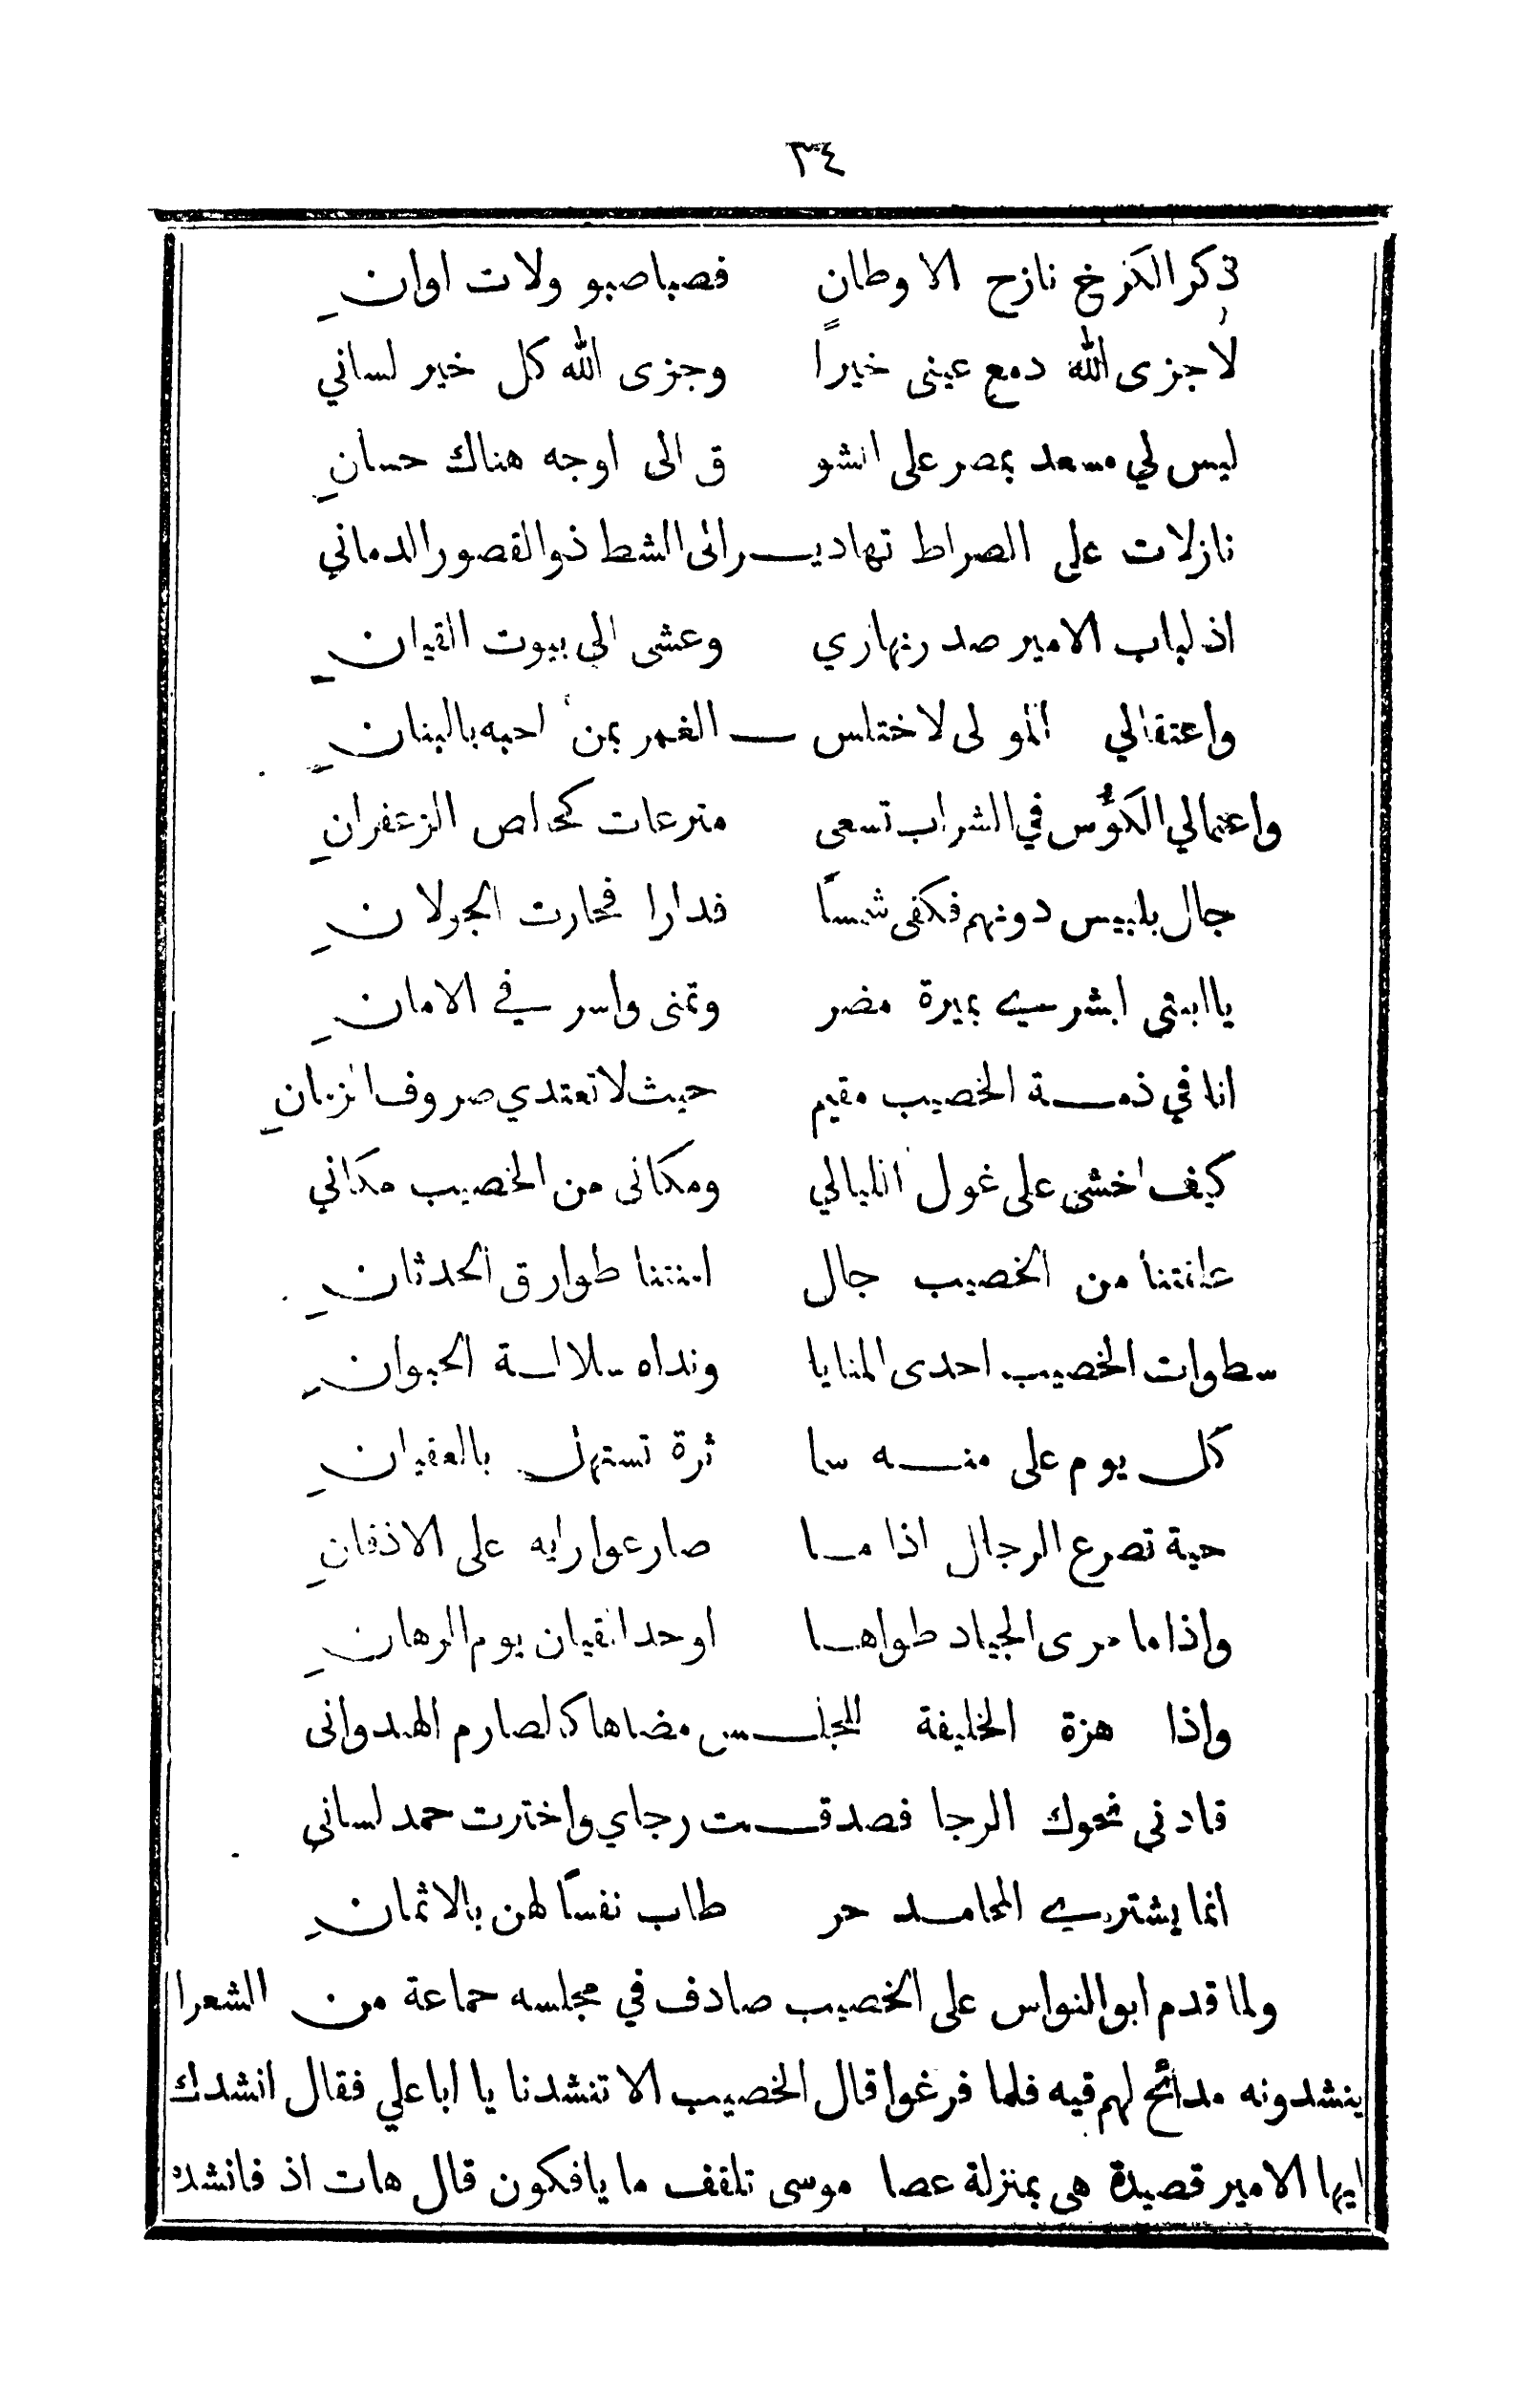 ٣٤
ذكر الكرخ نازح الاوطانِ فصبا صبو ولات اوانِ
لا جزى الله دمع عينى خيرًا وجزى الله كل خير لساني
ليس لي مسعد بمصر على الشو ق الى اوجه هناك حسانِ
نازلات على الصراط تهاديـــر الى الشط ذو القصور الدماني
اذ لباب الامير صدر نهاري وعشى الى بيوت القيانِ
واعتقالي المولى لاختلس ـــ الغمر بمن احبه بالبنانِ
واعتمالي الكؤُس في الشراب تسعى مترعات كخاص الزعفرانِ
جال بلبيس دونهم فكفى شمسًا فدارا فحارت الجولانِ
يا ابنتى ابشري بميرة مضر وتمنى واسر في الامانِ
انا في ذمـــة الخصيب مقيم حيث لا تعتدي صروف الزمانِ
كيف اخشى على غول الليالي ومكانى من الخصيب مكاني
علقتنا من الخصيب جال امنتنا طوارق الحدثانِ
سطوات الخصيب احدى المنايا ونداه سلالـــة الحيوانِ
كل يوم على منـــه سا ثرة تستهل بالعقيانِ
حية تصرع الرجال اذا مـــا صارعوا رايه على الاذقانِ
واذا ما مرى الجياد طواهـــا اوحد القيان يوم الرهانِ
واذا هزة الخليفة للجلـــس مضاها كالصارم الهدوانى
قادنى نحوك الرجا فصدقـــت رجاي واخترت حمد لسانى
انما يشتري المحامـــد حر طاب نفسًا لهن بالاثمانِ
ولما قدم ابو النواس على الخصيب صادف في مجلسه حماعة من الشعرا
ينشدونه مدائح لهم قيه فلما فرغوا قال الخصيب الا تنشدنا يا ابا علي فقال انشدك
ايها الامير قصيدة هى بمنزلة عصا موسى تلقف ما يافكون قال هات اذ فانشده